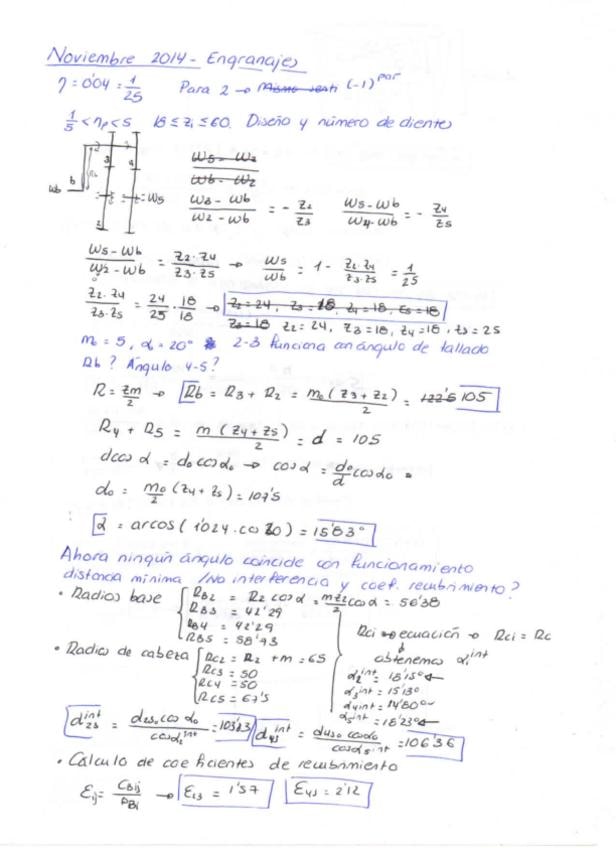 Noviembre 2014 - Engranajes
η = 0'04 = 1/25 Para 2 → Mismo senti (-1)^par
1/5 < ηp < 5 18 ≤ zi ≤ 60. Diseño y número de dientes
W5 - Wb / W2 - Wb
W3 - Wb / W2 - Wb = - Z2/Z3 W5 - Wb / W4 - Wb = - Z4/Z5
wb b = W5
W5 - Wb / W2 - Wb = Z2·Z4 / Z3·Z5 → W5/Wb = 1 - Z2·Z4 / Z3·Z5 = 1/25
Z2·Z4 / Z3·Z5 = 24/25 · 18/18 → Z2 = 24, Z3 = 18, Z4 = 18, Z5 = 18
Z3 = 18 Z2 = 24, Z3 = 18, Z4 = 18, Z5 = 25
m0 = 5, α = 20° 2-3 funciona con ángulo de tallado
Rb? Ángulo 4-5?
R = Zm/2 → Rb = R3 + R2 = m0(Z3 + Z2)/2 = 122'5 105
R4 + R5 = m(Z4 + Z5)/2 = d = 105
dcos α = d0 cos α0 → cos α = d0/d cos α0 =
d0 = m0/2 (Z4 + Z5) = 107'5
α = arcos(1'024 · cos 20) = 15'83°
Ahora ningún ángulo coincide con funcionamiento
distancia mínima /No interferencia y coef. recubrimiento?
• Radios base RB2 = R2 cos α = mZ2/2 cos α = 56'38
RB3 = 42'29
RB4 = 42'29
RB5 = 58'73
Rci → ecuación → Rci = Rc
obtenemos αi^int
• Radios de cabeza RC2 = R2 + m = 65
RC3 = 50
RC4 = 50
RC5 = 67'5
α2^int = 18'15°
α3^int = 15'13°
α4^int = 14'80°
α5^int = 18'23°
d23^int = d230 cos α0 / cos α2^int = 103'83 d45^int = d450 cos α0 / cos α5^int = 106'36
• Cálculo de coeficientes de recubrimiento
εij = CBij / PBi → ε23 = 1'57 ε45 = 2'12